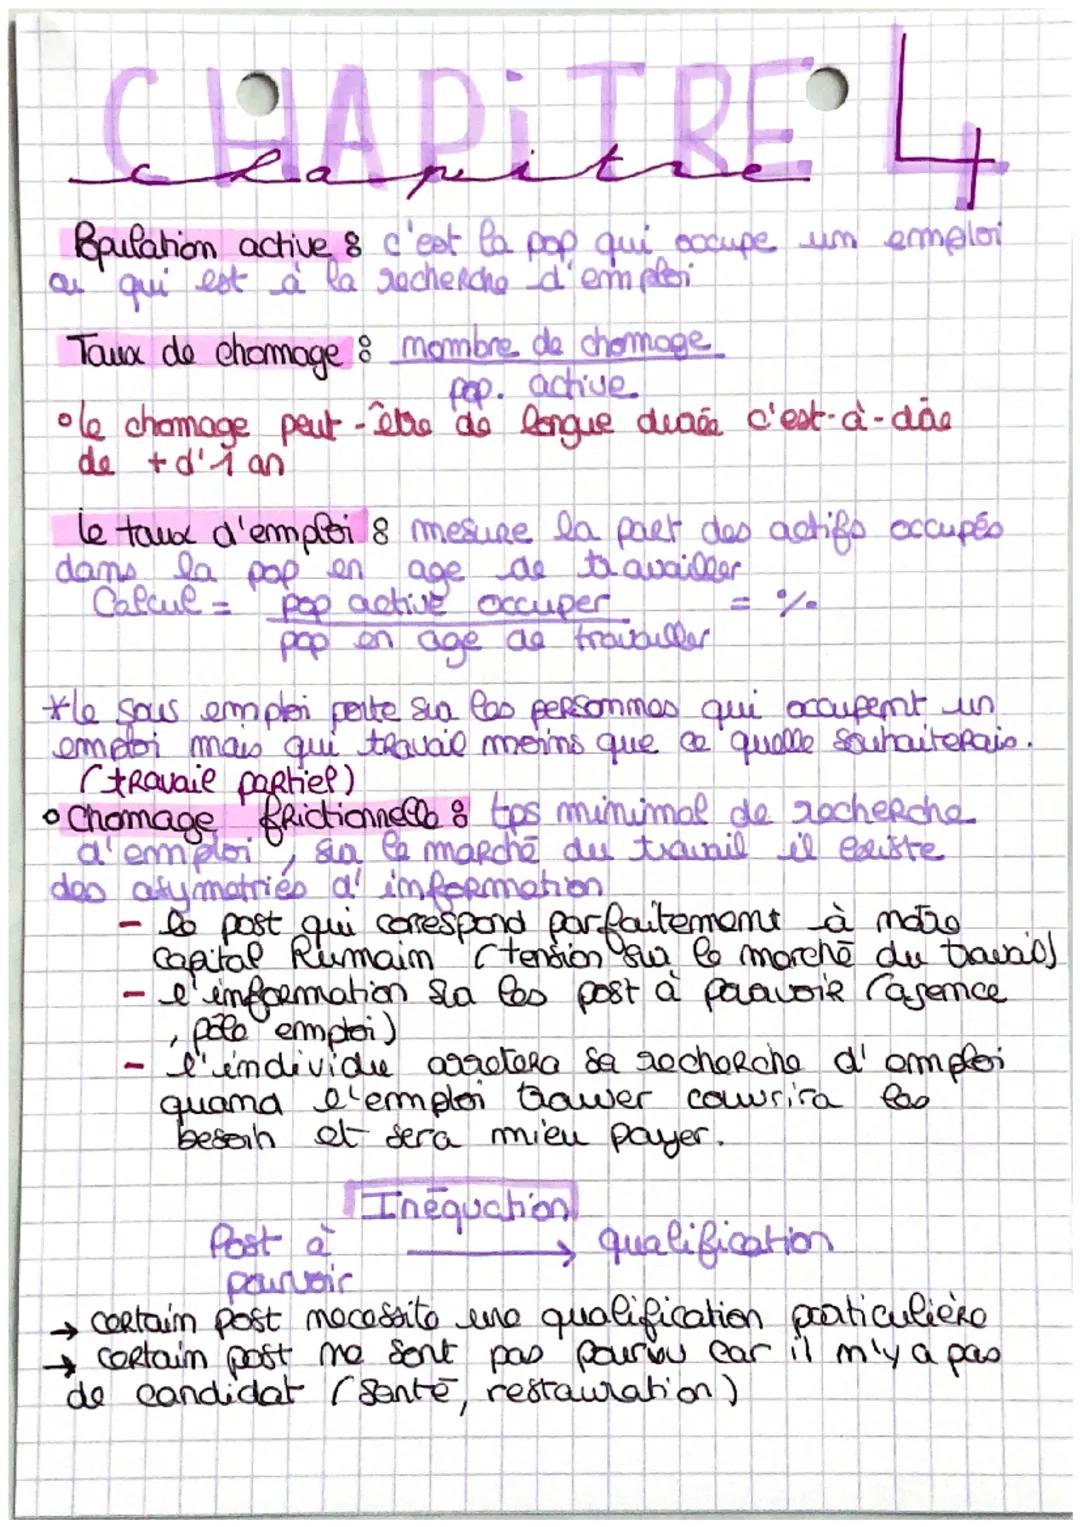 CHAPiTRE 4
chapitre
Population active : c'est la pop qui occupe un emploi
ou qui est à la recherche d'emploi
Taux de chomage : nombre de chomage
pop. active
• le chomage peut-être de longue durée c'est-à-dire
de + d'1 an
le taux d'emploi : mesure la part des actifs occupés
dans la pop en age de travailler
Calcul = pop active occuper = %
pop en age de travailler
* le sous emploi porte sur les personnes qui occupent un
emploi mais qui travail moins que ce qu'elle souhaiterais.
(travail partiel)
• Chomage frictionnelle : tps minimal de recherche
d'emploi, sur le marché du travail il existe
des asymetriés d'information
- le post qui correspond parfaitement à notre
capital humain (tension sur le marché du travail)
- l'information sur les post à pourvoir (agence
, pôle emploi)
- l'individu arretera sa recherche d'emploi
quand l'emploi trouver couvrira les
besoin et sera mieu payer.
Inéquation
Post à → qualification
pourvoir
→ certain post necessite une qualification particulière
→ certain post ne sont pas pourvu car il n'y a pas
de candidat (santé, restauration)